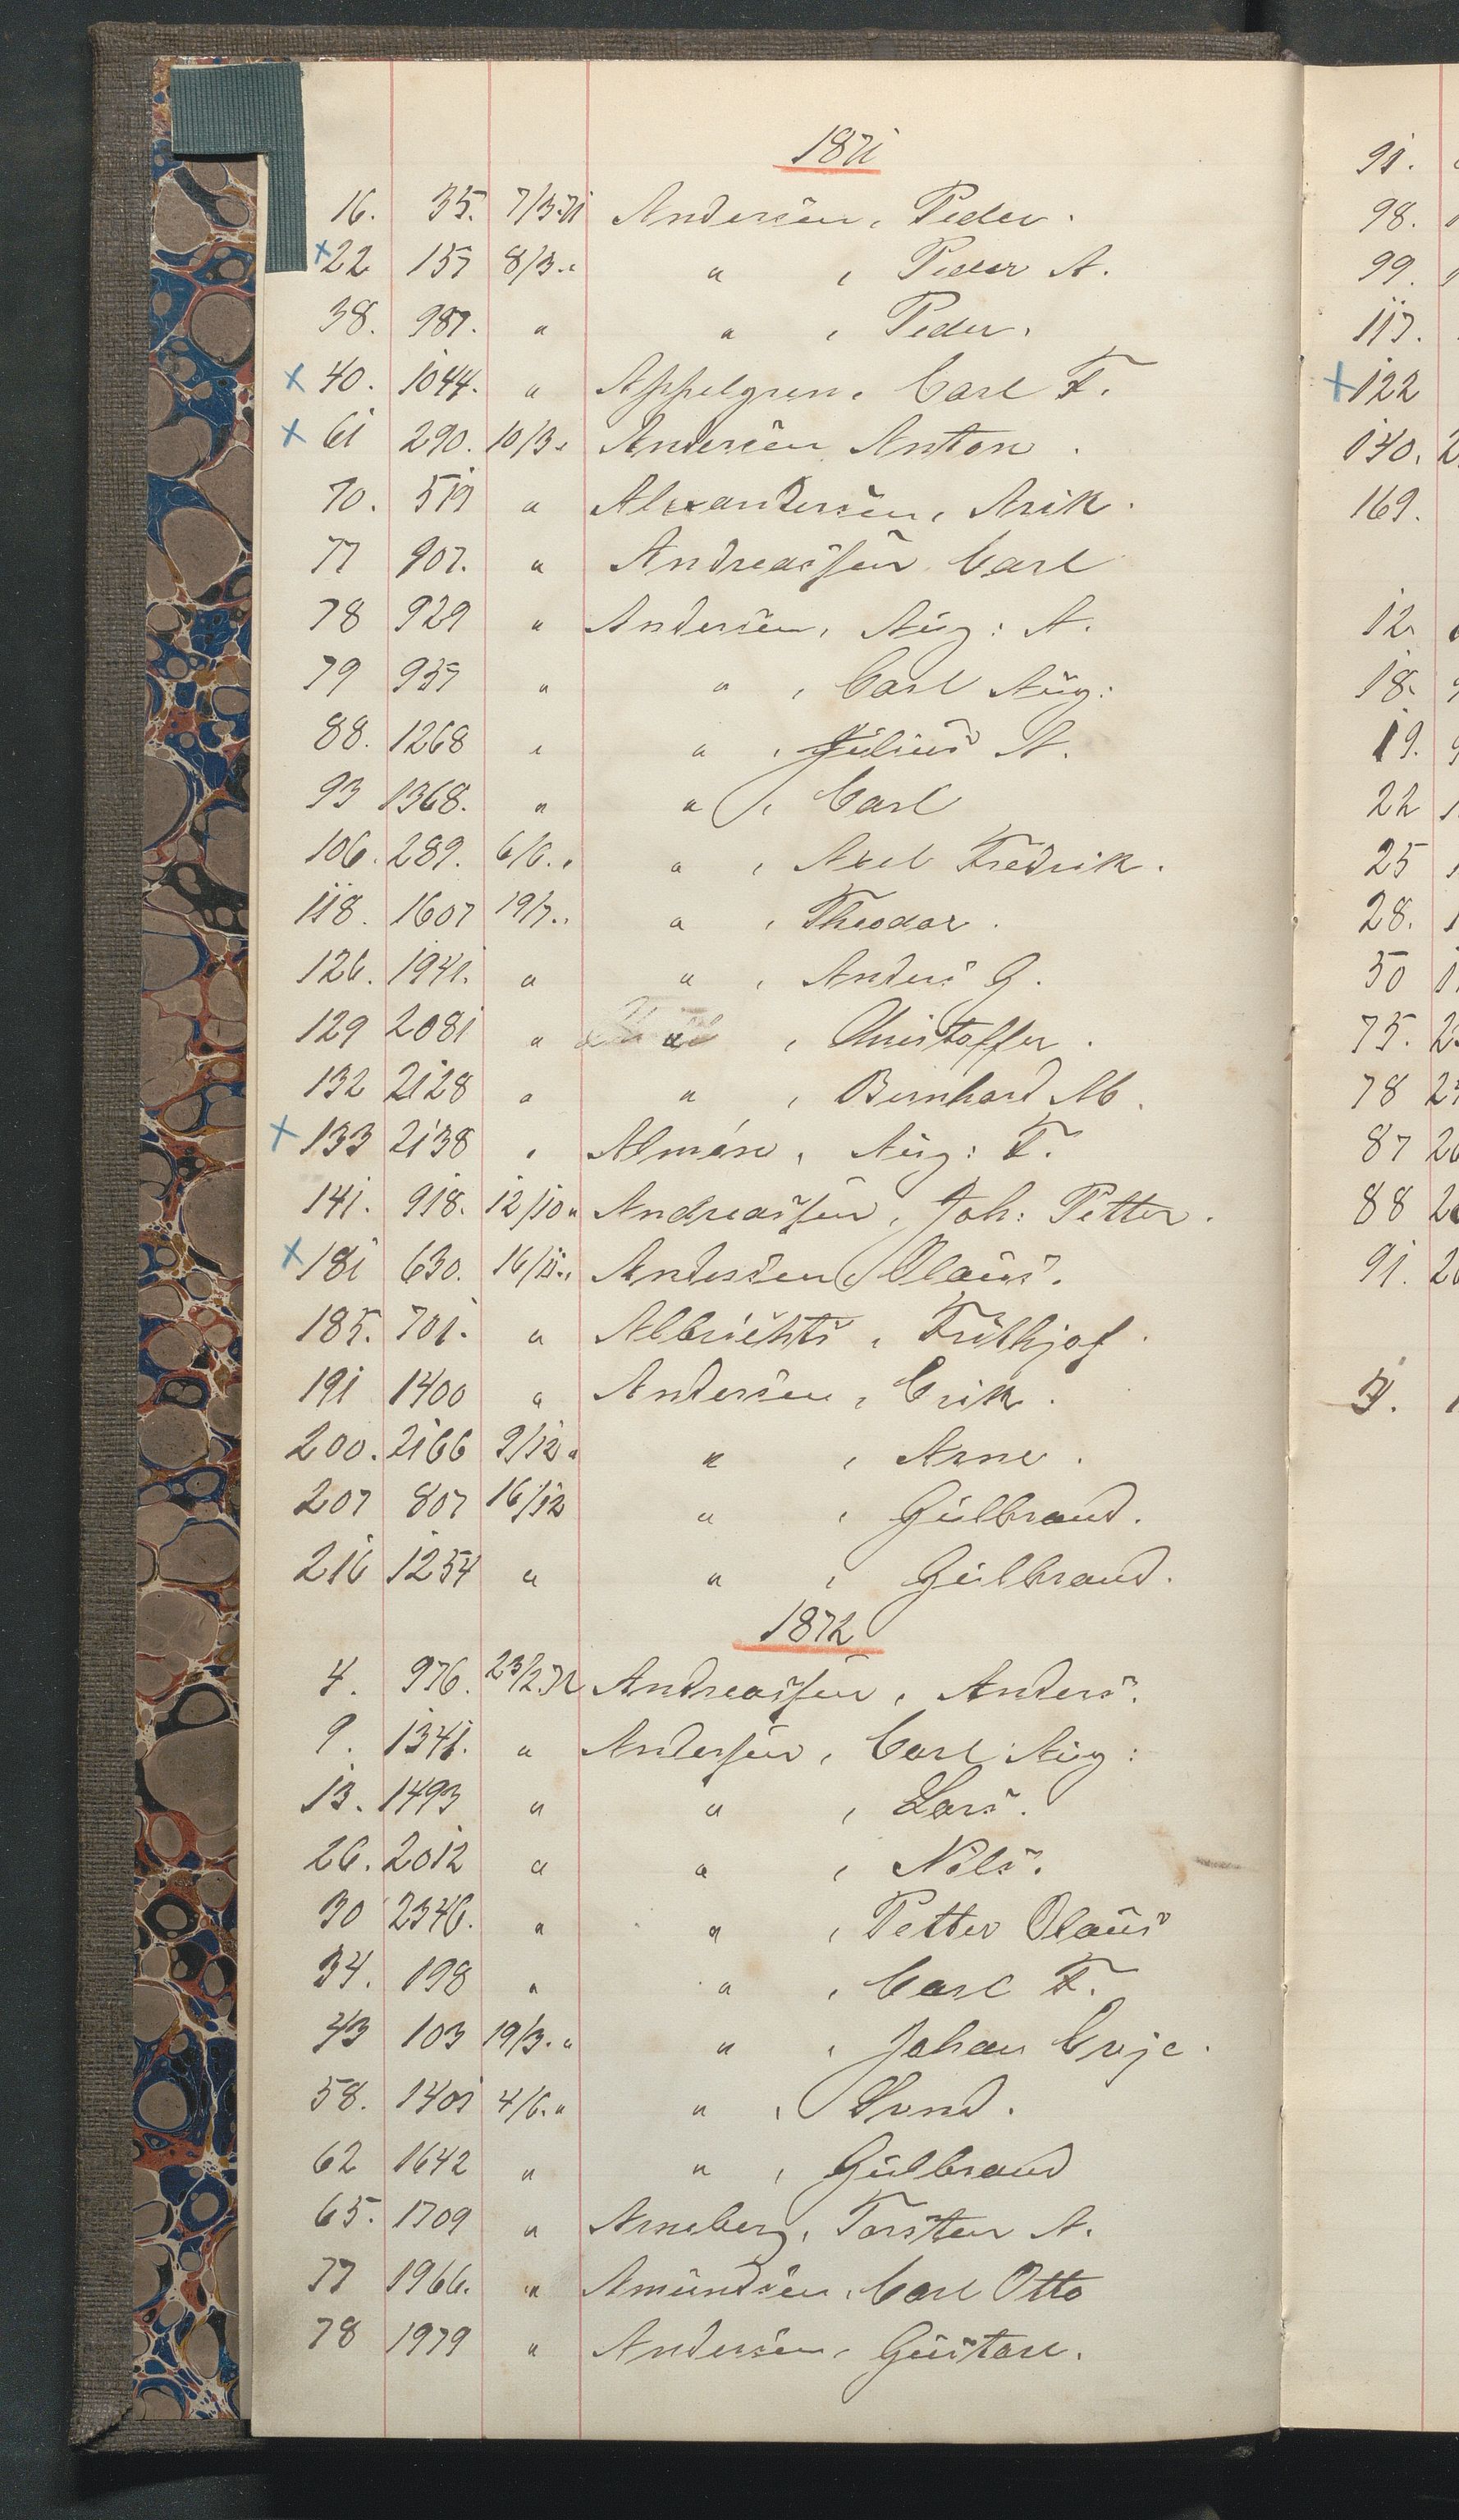 1871
16. 35. 7/3.71 Andersen, Peder.
x 22 157 8/3. " " , Peder A.
38. 987. " " , Peder.
x 40. 1044. " Appelgren, Carl F.
x 61 290. 10/3 " Andersen Anton.
70. 519 " Alexandersen, Arik.
77 907. " Andreassen Carl
78 929 " Andersen, Aug: A.
79 937 " " , Carl Aug:
88. 1268 " " , Julius A.
93 1368. " " , Carl
106. 289. 6/6. " " , Axel Fredrik.
118. 1607 19/7. " " , Theodor.
126. 1941. " " , Anders G.
129 2081 " " , Christoffer.
132 2128 " " , Bernhard M.
x 133 2138 " Almén, Aug: F.
141. 918. 12/10 " Andreassen, Joh: Petter.
x 181 630. 16/11. " Andersen, Olaus.
185. 701. " Albrichts, Frithjof.
191 1400 " Andersen, Erik.
200. 2166 9/12 " " , Arne.
207 807 16/12 " , Gulbrand.
216 1254 " " , Gulbrand.
1872
4. 976. 23/2.72 Andreassen, Anders.
9. 1341. " Anderssen, Carl Aug:
13. 1493 " " , Lars.
26. 2012 " " , Nils.
30 2346. " " , Petter Olaus
34. 198 " " , Carl F.
43 103 19/3. " " , Johan Evje.
58. 1401 4/6. " " , Svend.
62 1642 " " , Gulbrand
65. 1709 " Arneberg, Torsten A.
77 1966. " Amundsen, Carl Otto
78 1979 " Andersen, Gustav.
91.
98.
99.
117.
x 122
140. 2
169.
12.
18.
19.
22
25
28.
50
75. 2
78 2
87 2
88 2
91. 2